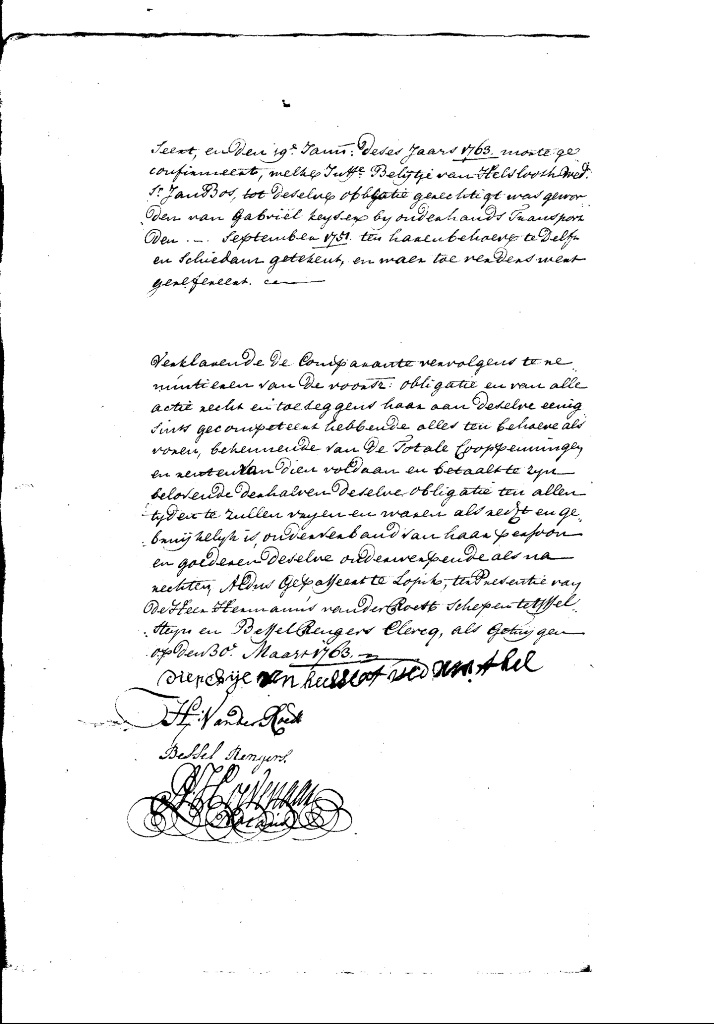 seert, en den 19e Janu: deses Jaars 1763. morte ge
confirmeert, welke Juffe. Beligtje van Helsloot wed.
Sr. Jan Bos, tot deselve obligatie gerechtigt was gewor
den van Gabriël Keyser by onderhands Transport
den - - September 1751. ten haren behoeve te Delft
en Schiedam getekent, en waer toe verders wert
gerefereert.
Verklarende de Comparante vervolgens te re
nuntieren van de voorsz: obligatie en van alle
actie recht en toeseggens haar aan deselve eenig
sints gecompeteert hebbende alles ten behoeve als
voren, bekennende van de Totale Cooppenningen
en renten van dien voldaan en betaalt te zyn
belovende derhalven deselve obligatie ten allen
tyden te zullen vryen en waren als recht en ge
bruijkelyk is, onder verband van haar persoon
en goederen deselve onderwerpende als na
rechten, Aldus Gepasseert te Lopik, ter Presentie van
De Heer Hermanus van der Roest Schepen te Yssel
steyn en Bessel Rengers Clercq, als Getuygen
op den 30e. Maart 1763.
van heesslot wed
H: Van der Roest
Bessel Rengers.
Notaris